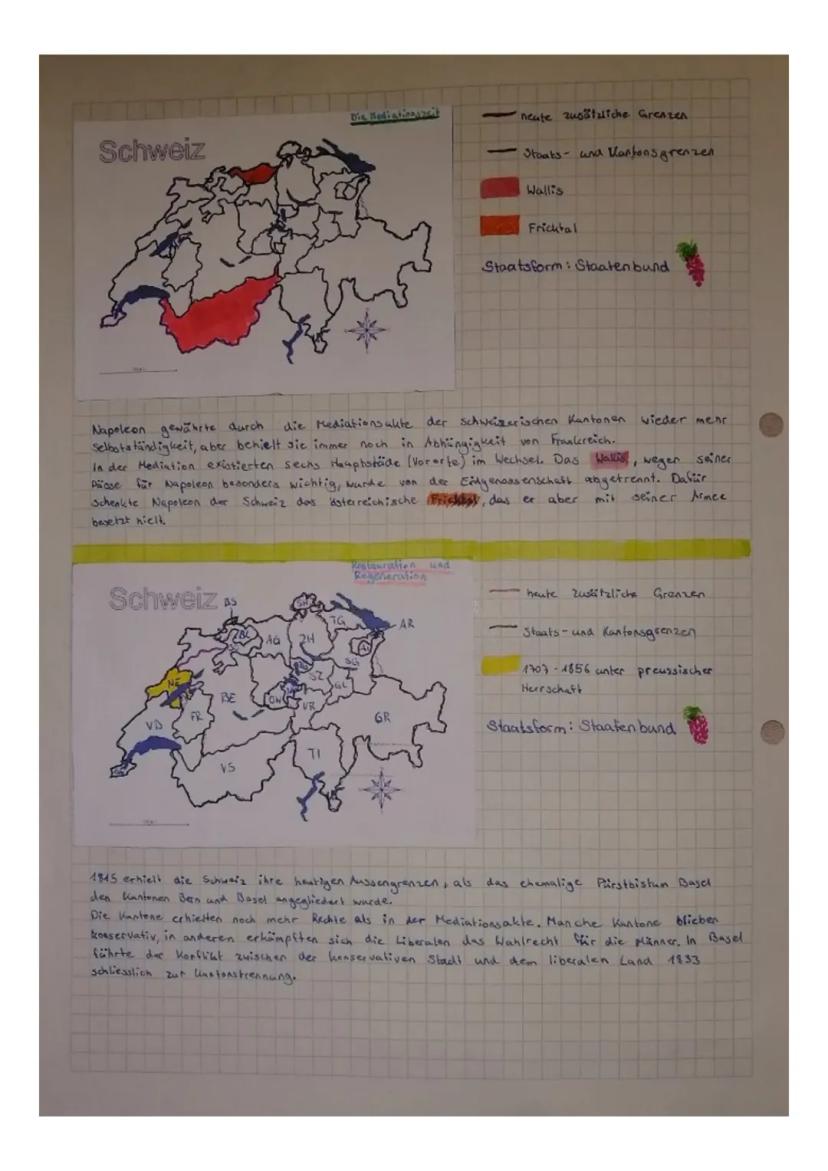 Die Mediationszeit
Schweiz
heute zusätzliche Grenzen
Staats- und Kantonsgrenzen
Wallis
Fricktal
Staatsform: Staatenbund
Napoleon gewährte durch die Mediationsakte der schweizerischen Kantonen wieder mehr
Selbstständigkeit, aber behielt sie immer noch in Abhängigkeit von Frankreich.
In der Mediation existierten sechs Hauptstäde (Vororte) im Wechsel. Das Wallis, wegen seiner
Pässe für Napoleon besonders wichtig, wurde von der Eidgenossenschaft abgetrennt. Dafür
schenkte Napoleon der Schweiz das österreichische Fricktal, das er aber mit seiner Armee
besetzt hielt.
Restauration und
Regeneration
Schweiz
BS
SH
TG
AR
BL
AG
ZH
AI
SG
NE
SZ
GL
BE
OW
UR
VD
FR
GR
VS
TI
heute zusätzliche Grenzen
Staats- und Kantonsgrenzen
1707-1856 unter preussischer
Herrschaft
Staatsform: Staatenbund
1815 erhielt die Schweiz ihre heutigen Aussengrenzen, als das ehemalige Fürstbistum Basel
den Kantonen Bern und Basel angegliedert wurde.
Die Kantone erhielten noch mehr Rechte als in der Mediationsakte. Manche Kantone blieben
konservativ, in anderen erkämpften sich die Liberalen das Wahlrecht für die Männer. In Basel
führte der Konflikt zwischen der konservativen Stadt und dem liberalen Land 1833
schliesslich zur Kantonstrennung.